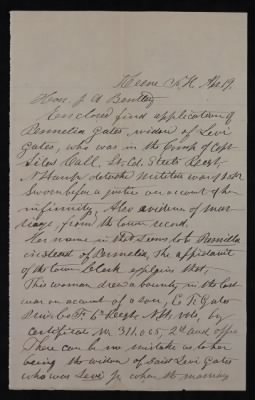 Keene N.H. Apr 19.
Hon. J. A. Bentley
Enclosed find application of
Permelia Gates, widow of Levi
Gates, who was in the Comp of Capt
Silas Call, Lt. Col. Steels Regt,
N Hamp militia was
Sworn before a justice on account of her
infirmity, Also evidence of mar
riage, from the town record.
Her name in that seems to be Pamilla
instead of Permelia, The affidavit
of the town Clerk explains that,
This woman drew a bounty in the last
war on account of a son, C. F. Gates
6th Regt N.H. vols, by
certificate No 311,065, 2nd aud office
There can be no mistake as to her
being the widow of said Levi Gates
who was Levi Jr when the marriag